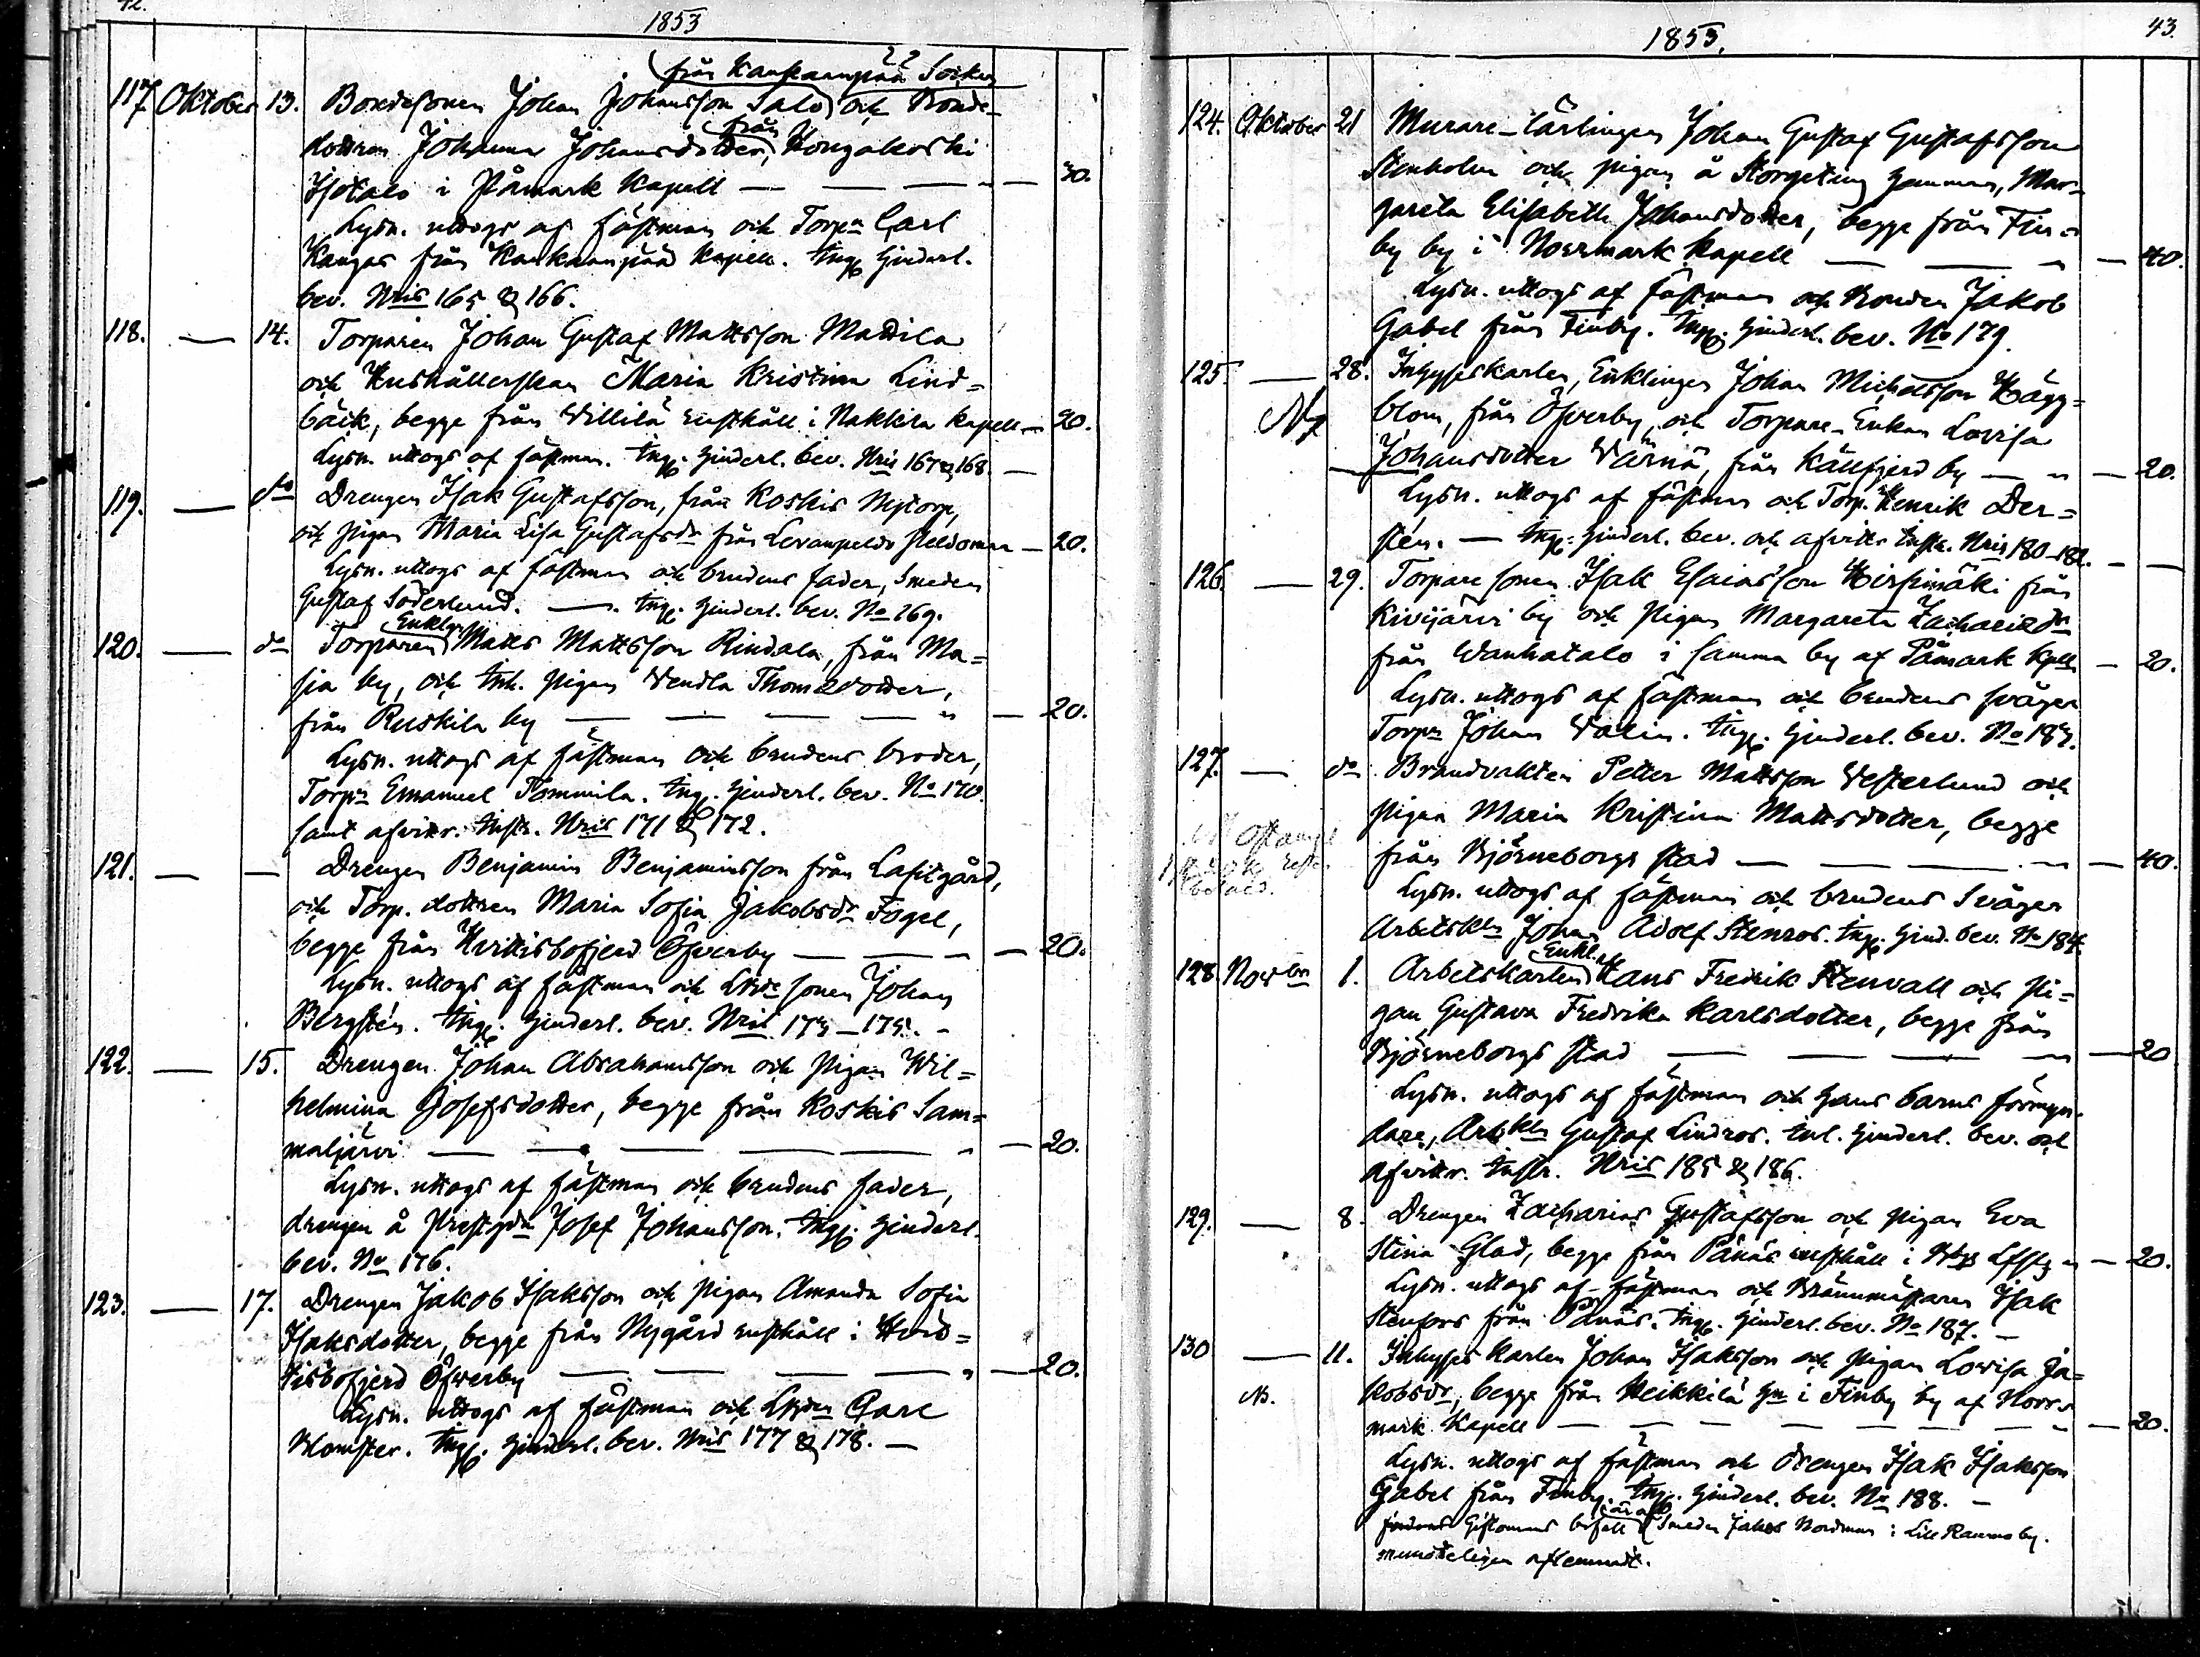 42.
1853
från Kankaanpää Socken
117 Oktober 13. Bondesonen Johan Johansson Salo och Bonde-
dottren Johanna Johansdotter, från Hongakoski
Isotalo i Påmark Kapell — 30.
Lysn. uttogs af fästman och Torpn Carl
Kangas från Kankaanpää Kapell. Ingp. hinderl.
bev. Nris 165 & 166.
118. — 14. Torparen Johan Gustaf Mattsson Mattila
och Hushållerskan Maria Kristina Lind=
bäck, begge från Villilä rusthåll i Nakkila Kapell — 20.
Lysn. uttogs af fästman. Ingp. hinderl. bev. Nris 167 & 168 —
119. — do Drengen Isak Gustafsson, från Koskis Nytorp,
och Pigan Maria Lisa Gustafsdr från Levanpeldo — 20.
Lysn. uttogs af fästman och brudens fader, Smeden
Gustaf Söderlund. — Ingp. hinderl. bev. No 169.
120. — do Torparen Enkl. Matts Mattsson Rindala, från Ma=
sia by, och Inh. Pigan Vendla Thomasdotter,
från Ruskila by — 20.
Lysn. uttogs af fästman och brudens broder,
Torpn Emanuel Tommila. Ingp. hinderl. bev. No 170.
samt afvittr. Instr. Nris 171 & 172.
121. — — Drengen Benjamin Benjaminsson från Lasitgård,
och Torp. dottren Maria Sofia Jakobsdr Fogel,
begge från Hvittisbofjerd Öfverby — 20.
Lysn. uttogs af fästman och sonen Johan
Bergstén. Ingp. hinderl. bev. Nris 173–175. –
122. — 15. Drengen Johan Abrahamsson och Pigan Wil=
helmina Josefsdotter, begge från Koskis Sam=
maljärvi — 20.
Lysn. uttogs af fästman och brudens fader,
drengen å Josef Johansson. Ingp. hinderl.
bev. No 176.
123. — 17. Drengen Jakob Isaksson och Pigan Amanda Sofia
Isaksdotter, begge från Nygård rusthåll i Hvit=
tisbofjerd Öfverby — 20.
Lysn. uttogs af fästman och Carl
Blomster. Ingp. hinderl. bev. Nris 177 & 178. —
1853.
43.
124. Oktober 21 Murare-lärlingen Johan Gustaf Gustafsson
Stenholm och pigan å Storgeting hemman, Mar=
gareta Elisabeth Johansdotter, begge från Fin=
by by i Norrmark Kapell — 40.
Lysn. uttogs af fästman och Bonden Jakob
Gabel från Finby. Ingp. hinderl. bev. No 179.
125. — 28. Inhyseskarlen, Enklingen Johan Michelsson Hägg=
blom, från Öfverby, och Torpare-Enkan Lovisa
Johansdotter Värnä, från Källfjerd by — 20.
Lysn. uttogs af fästman och Torp. Henrik Der=
stén. — Ingp. hinderl. bev. och afvittr. Instr. Nris 180–182. —
126. — 29. Torpare sonen Isak Esaiasson Hirsimäki från
Kivijärvi by och Pigan Margareta Zachariædr
från Wanhatalo i samma by af Påmark Kpll — 20.
Lysn. uttogs af fästman och brudens svåger
Torpn Johan Valin. Ingp. hinderl. bev. No 183.
127. — do Brandvakten Petter Mattsson Vesterlund och
Pigan Maria Kristina Mattsdotter, begge
från Björneborgs stad — 40.
Lysn. uttogs af fästman och brudens Svåger
Arbetskln Johan Adolf Stenros. Ingp. hind. bev. No 184.
128. Novbr 1. Arbetskarlen Enkl. Hans Fredrik Stenvall och Pi=
gan Gustava Fredrika Karlsdotter, begge från
Björneborgs stad — 20
Lysn. uttogs af fästman och hans barns förmyn-
dare, Arbkln Gustaf Lindros. hinderl. bev. och
afvittr. Instr. Nris 185 & 186.
129. — 8. Drengen Zacharias Gustafsson och Pigan Eva
Stina Glad, begge från Pänäs rusthåll i — 20.
Lysn. uttogs af fästman och Brännmästaren Isak
Stenfors från Pänäs. Ingp. hinderl. bev. No 187. —
130 — 11. Inhyses karlen Johan Isaksson och Pigan Lovisa Ja=
NB. kobsdr, begge från Heikkilä hn i Finby by af Norr=
mark Kapell — 20.
Lysn. uttogs af fästman och drengen Isak Isaksson
Gabel från Finby. Ingp. hinderl. bev. No 188. —
Giftomans Smeden Jakob Nordman i Lill Raumo by.